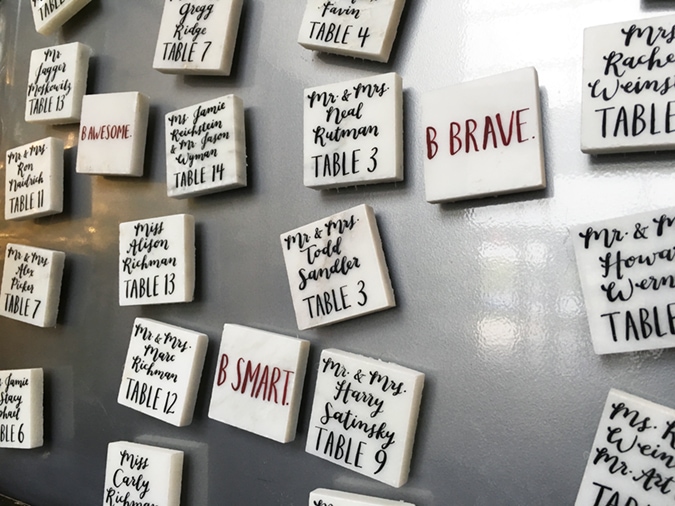 Gregg
Ridge
TABLE 7
Favin
TABLE 4
Mrs
Rache
Weinst
TABLE
Mr
Jagger
Moskowitz
TABLE 13
B AWESOME.
Ms. Jamie
Reichstein
& Mr. Jason
Wyman
TABLE 14
Mr. & Mrs.
Neal
Rutman
TABLE 3
B BRAVE.
Mr. & Mrs.
Ron
Naidrich
TABLE 11
Miss
Alison
Richman
TABLE 13
Mr. & Mrs.
Todd
Sandler
TABLE 3
Mr. & M
Howar
Wern
TABLE
Mr. & Mrs.
Alex
TABLE 7
Mr. & Mrs.
Marc
Richman
TABLE 12
B SMART.
Mr. & Mrs.
Harry
Satinsky
TABLE 9
Jamie
Stacy
BLE 6
Miss
Carly
Richman
Ms. R
Wein
Mr. Art
TABL